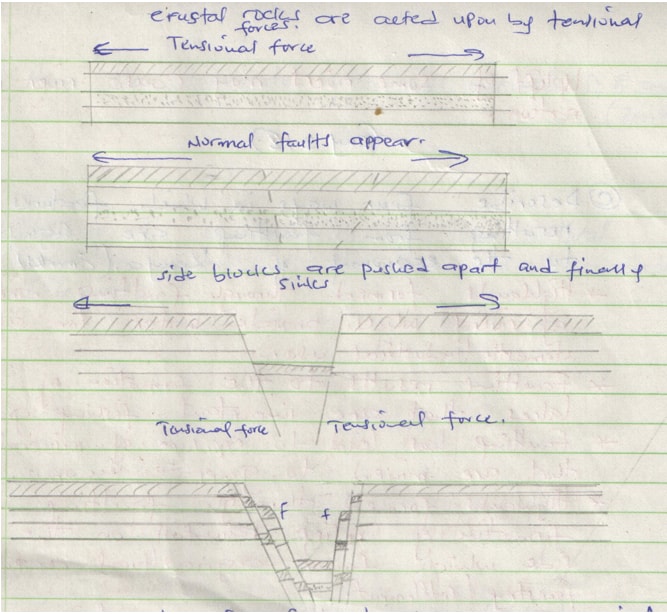 crustal rocks are acted upon by tensional
forces.
Tensional force
Normal faults appear.
side blocks are pushed apart and finally
sinks
Tensional force Tensional force.
f f